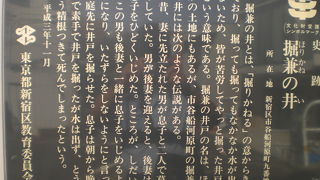 文化財愛護
シンボルマーク
史跡
ほりかねのい
堀兼の井
所在地 新宿区市谷船河原町
堀兼の井とは、「掘りかねる」の意からき
おり、掘っても掘ってもなかなか水が出な
いため、皆が苦労してやっと掘った井戸と
いう意味である。堀兼の井戸の名は、ほか
の土地にもあるが、市谷船河原町の堀兼の
井には次のような伝説がある。
昔、妻に先立たれた男が息子と二人で暮ら
していた。男が後妻を迎えると、後妻は息
子をひどくいじめた。ところが、しだいに
この男も後妻と一緒に息子をいじめるよう
になり、いたずらをしないようにと言って
庭先に井戸を掘らせた。息子は朝から晩ま
で素手で井戸を掘ったが水は出ず、とうと
う精根つきて死んでしまったという。
平成三年十一月
東京都新宿区教育委員会